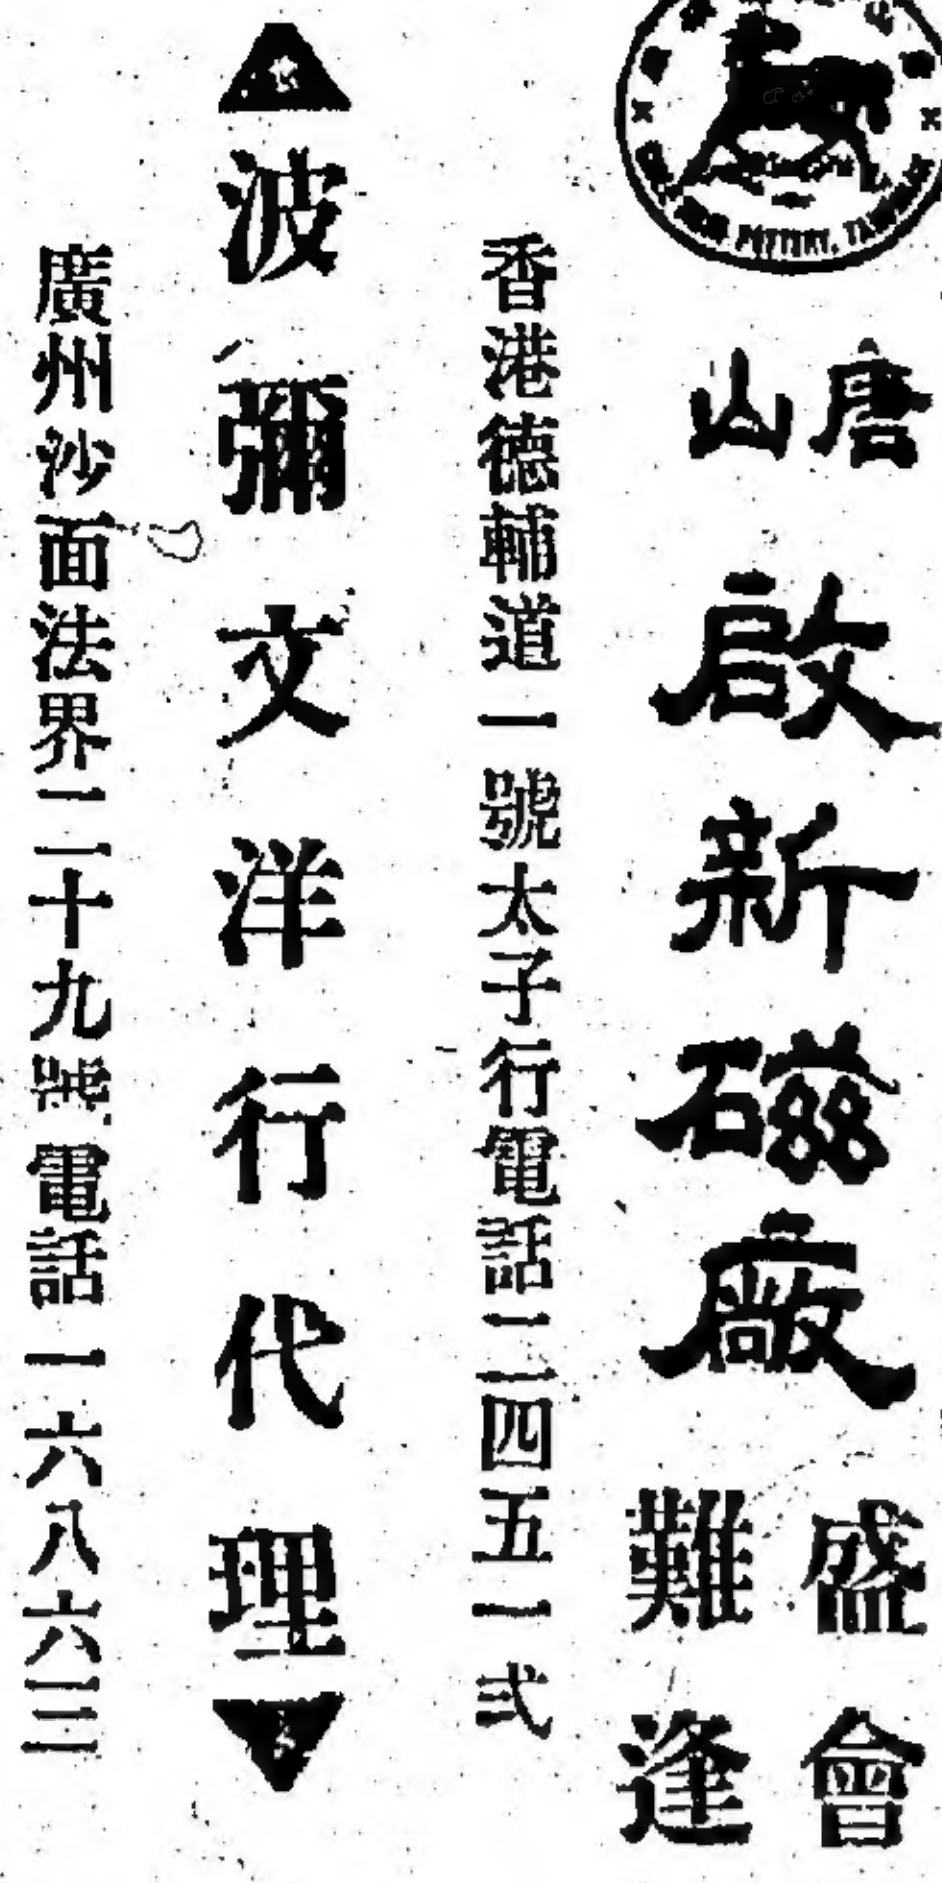 POTTERY, TA
唐山
啟新磁廠
盛會難逢
香港德輔道一號太子行電話二四五一弍
波彌文洋行代理
廣州沙面法界二十九號電話一六八六三